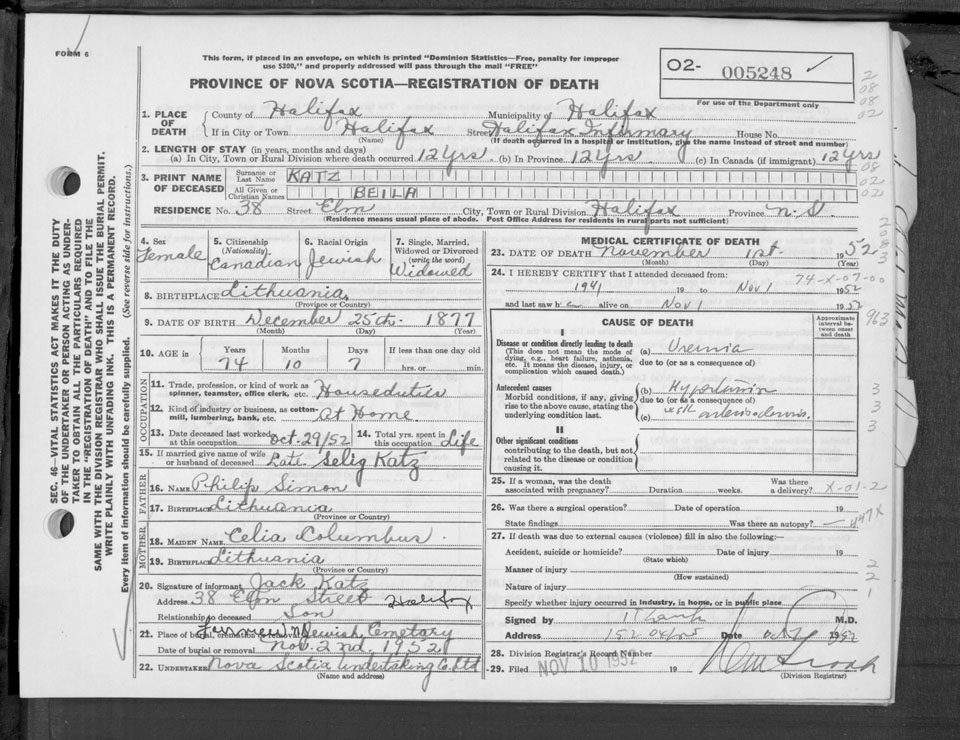 FORM 6
This form, if placed in an envelope, on which is printed "Dominion Statistics—Free, penalty for improper
use $300," and properly addressed will pass through the mail "FREE"
PROVINCE OF NOVA SCOTIA—REGISTRATION OF DEATH
O2- 005248
For use of the Department only
SEC. 46—VITAL STATISTICS ACT MAKES IT THE DUTY
OF THE UNDERTAKER OR PERSON ACTING AS UNDER-
TAKER TO OBTAIN ALL THE PARTICULARS REQUIRED
IN THE "REGISTRATION OF DEATH" AND TO FILE THE
SAME WITH THE DIVISION REGISTRAR WHO SHALL ISSUE THE BURIAL PERMIT.
WRITE PLAINLY WITH UNFADING INK. THIS IS A PERMANENT RECORD.
Every item of information should be carefully supplied. (See reverse side for instructions.)
1. PLACE OF DEATH
County of Halifax Municipality of Halifax
If in City or Town Halifax Street Halifax Infirmary House No.
(Name) (If death occurred in a hospital or institution, give the name instead of street and number)
2. LENGTH OF STAY (in years, months and days)
(a) In City, Town or Rural Division where death occurred 12 yrs. (b) In Province 12 yrs. (c) In Canada (if immigrant) 12 yrs
3. PRINT NAME OF DECEASED
Surname or Last Name KATZ
All Given or Christian Names BEILA
RESIDENCE No. 38 Street Elm City, Town or Rural Division Halifax Province N.S.
(Residence means usual place of abode. Post Office Address for residents in rural parts not sufficient)
4. Sex Female
5. Citizenship (Nationality). Canadian
6. Racial Origin Jewish
7. Single, Married, Widowed or Divorced (write the word) Widowed
8. BIRTHPLACE Lithuania
(Province or Country)
9. DATE OF BIRTH December 25th 1877
(Month) (Day) (Year)
10. AGE in Years 74 Months 10 Days 7 If less than one day old
hrs. or min.
OCCUPATION
11. Trade, profession, or kind of work as spinner, teamster, office clerk, etc. Houseduties
12. Kind of industry or business, as cotton-mill, lumbering, bank, etc. At Home
13. Date deceased last worked at this occupation Oct. 29/52 14. Total yrs. spent in this occupation Life
15. If married give name of wife or husband of deceased Late Selig Katz
FATHER
16. NAME Philip Simon
17. BIRTHPLACE Lithuania
(Province or Country)
MOTHER
18. MAIDEN NAME Celia Columbus
19. BIRTHPLACE Lithuania
(Province or Country)
20. Signature of informant Jack Katz
Address 38 Elm Street Halifax
Relationship to deceased Son
21. Place of burial, cremation or removal Jewish Cemetary
Date of burial or removal Nov. 2nd. 1952
22. UNDERTAKER Nova Scotia Undertaking Co Ltd
(Name and address)
MEDICAL CERTIFICATE OF DEATH
23. DATE OF DEATH November 1st 1952
(Month) (Day) (Year)
24. I HEREBY CERTIFY that I attended deceased from:
74-X-07-00
1941 19 to Nov 1 1952
and last saw her alive on Nov 1 1952
CAUSE OF DEATH
Approximate interval between onset and death
963
I
Disease or condition directly leading to death
(This does not mean the mode of dying, e.g., heart failure, asthenia, etc. It means the disease, injury, or complication which caused death.)
(a) Uremia
due to (or as a consequence of)
Antecedent causes
Morbid conditions, if any, giving rise to the above cause, stating the underlying condition last.
(b) Hypertension
due to (or as a consequence of)
(c)
II
Other significant conditions
contributing to the death, but not related to the disease or condition causing it.
25. If a woman, was the death associated with pregnancy? Duration weeks. Was there a delivery? X-01-2
26. Was there a surgical operation? Date of operation 19
State findings Was there an autopsy?
27. If death was due to external causes (violence) fill in also the following:—
Accident, suicide or homicide? Date of injury 19
(State which)
Manner of injury
(How sustained)
Nature of injury
Specify whether injury occurred in industry, in home, or in public place
Signed by M.D.
Address 152 Oxford Date 1952
28. Division Registrar's Record Number
29. Filed NOV 10 1952 19
(Division Registrar)